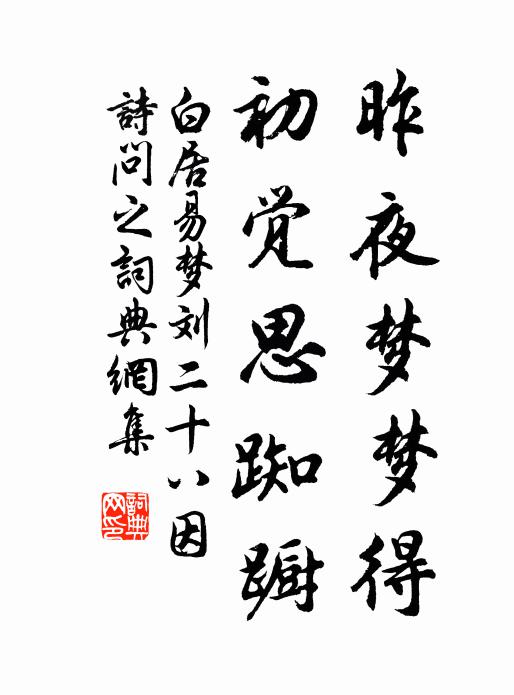 昨夜梦梦得
初觉思踟蹰
白居易梦刘二十八因
詩问之詞典網集
詞典网印